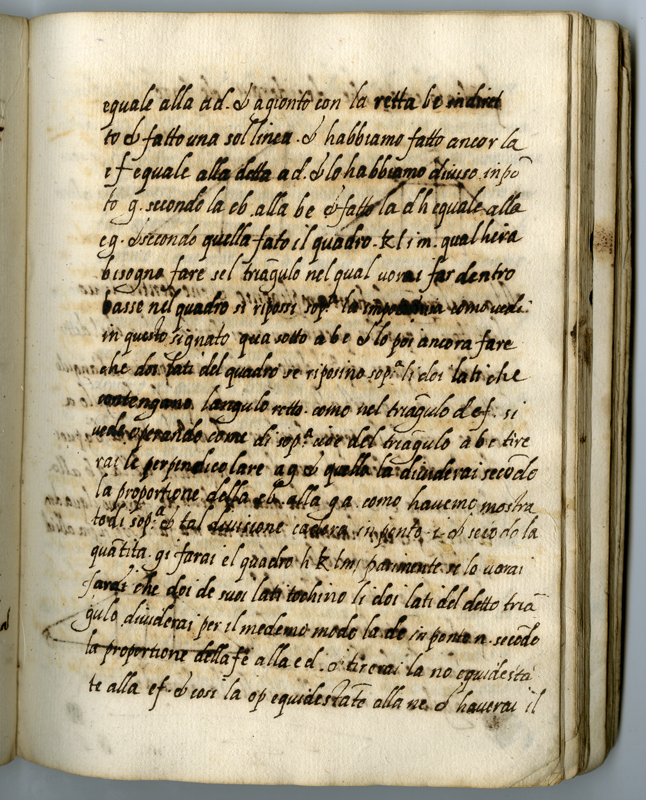 equale alla ad. & agionto con la retta be indiret
to & fatto una sol linea. & habbiamo fatto ancor la
ef equale alla detta ad. & lo habbiamo diuiso in pō
to g. secondo la eb. alla be & fatto la dh equale alla
eg. & secondo quella fato il quadro. k l i m. qual hera
bisogno fare se l triāgulo nel qual uorai far dentro
basse nel quadro si riposi sopᵃ la como uedi.
in questo signato qua sotto abe & lo poi ancora fare
che doi lati del quadro se riposino sopᵃ li doi lati che
contengano langulo retto. como nel triāgulo def. si
uede operando come di sopᵃ cioe del triāgulo abe tire
rai le perpendicolare ag & quella la diuiderai secōdo
la proportione della eb. alla ga como hauemo mostra
to di sopᵃ & tal diuisione cadera in ponto. i. & secōdo la
quātita. gi farai el quadro h k lm, parimente se lo uorai
farai che doi de suoi lati tochino li doi lati del detto triā
gulo diuiderai per il medemo modo la de in ponto n. secōdo
la proportione della fe alla ed. & tirerai la no equidestā
te alla ef. & cosi la op equidestāte alla ne. & hauerai il